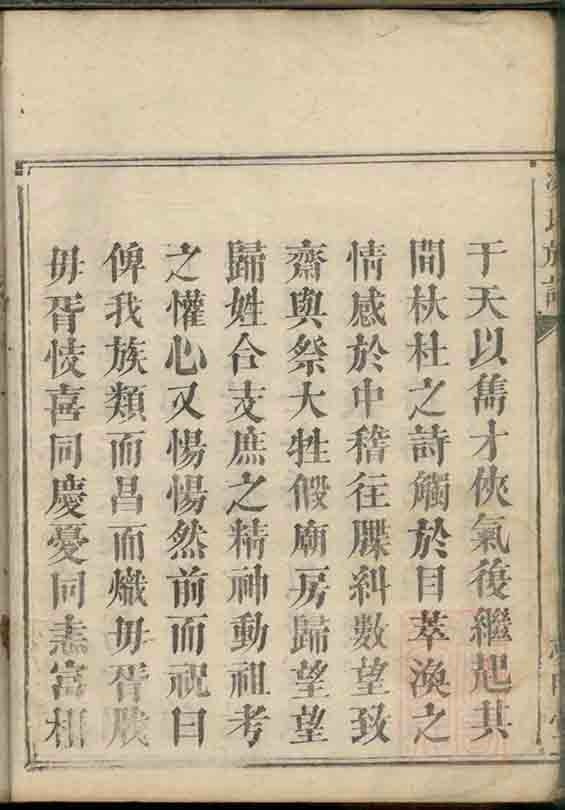 于天以雋才俠氣復繼起其
間杕杜之詩觸於目萃渙之
情感於中稽往牒糾數望致
齋與祭大牲假廟房歸望望
歸姓合支庶之精神動祖考
之懽心又惕惕然前而祝曰
俾我族類而昌而熾毋胥戕
毋胥忮喜同慶憂同恚富相